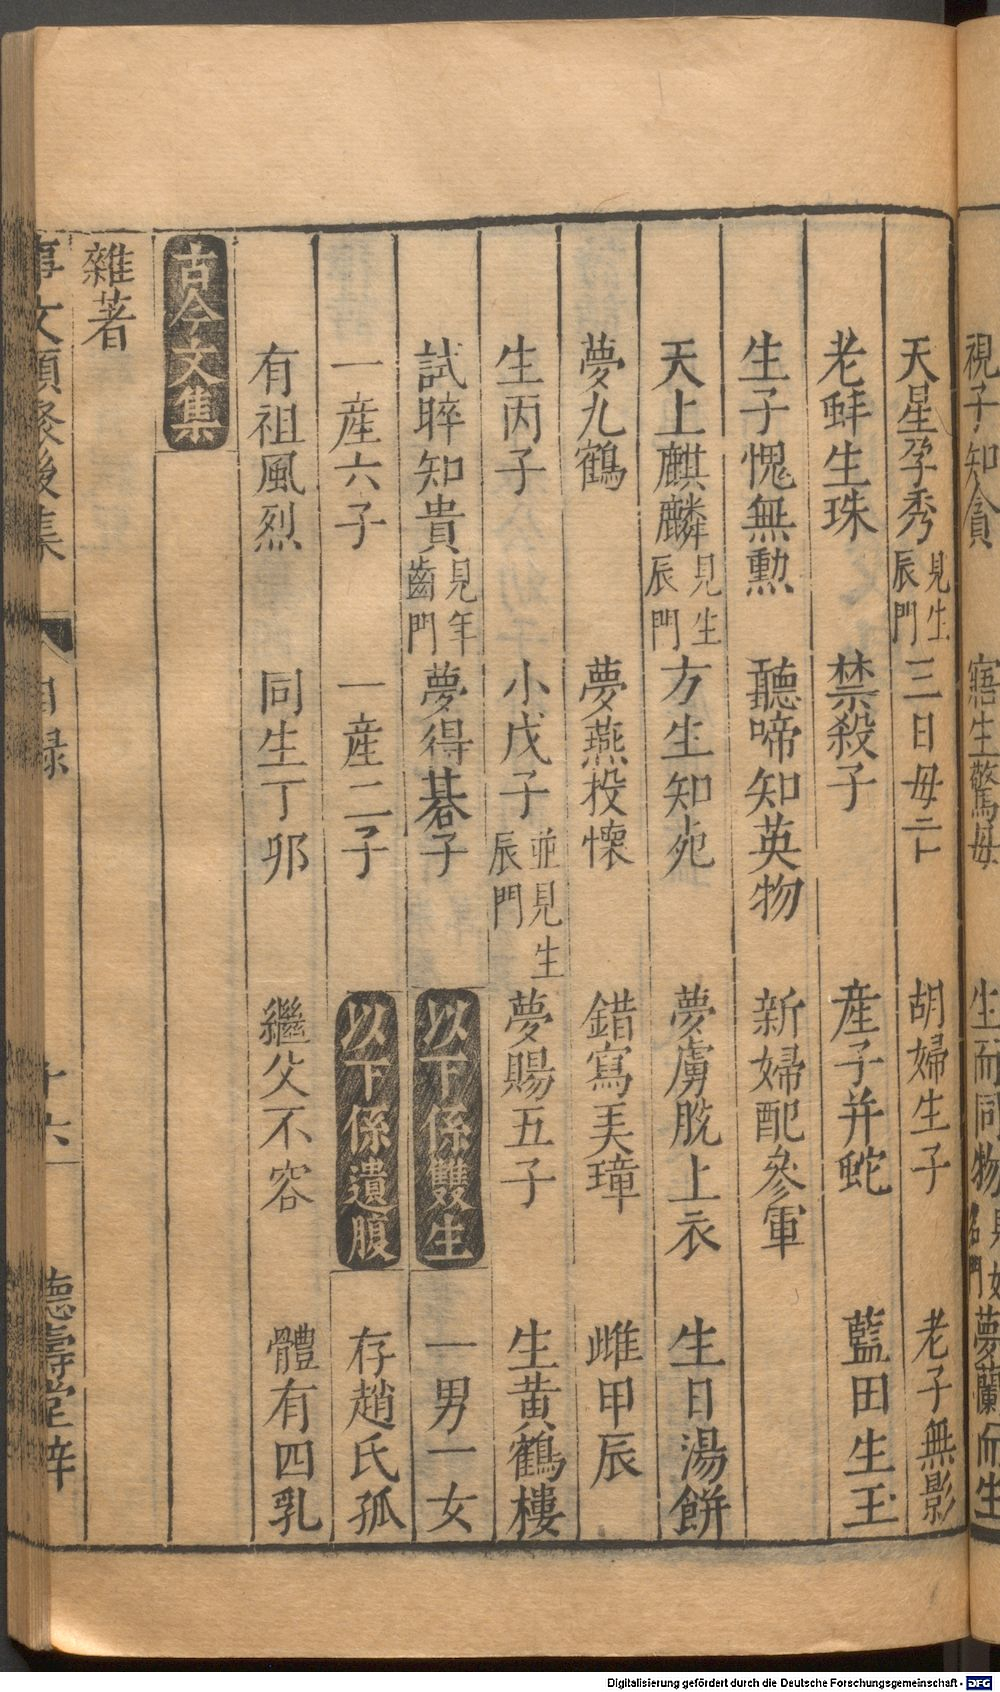 視子知貪 寤生驚母 生而同物 名門 夢蘭而生
天星孕秀 見生辰門 三日母亡 胡婦生子 老子無影
老蚌生珠 禁殺子 産子并蛇 藍田生玉
生子愧無勲 聽啼知英物 新婦配參軍
天上麒麟 見生辰門 方生知死 夢虜脫上衣 生日湯餅
夢九鶴 夢燕投懷 錯寫弄璋 雌甲辰
生丙子 小戊子 並見生辰門 夢賜五子 生黄鶴樓
試晬知貴 見年齒門 夢得碁子 以下係雙生 一男一女
一産六子 一産二子 以下係遺腹 存趙氏孤
有祖風烈 同生丁卯 繼父不容 體有四乳
古今文集
雜著
事文類聚後集 目録 十六 德壽堂梓
Digitalisierung gefördert durch die Deutsche Forschungsgemeinschaft - DFG